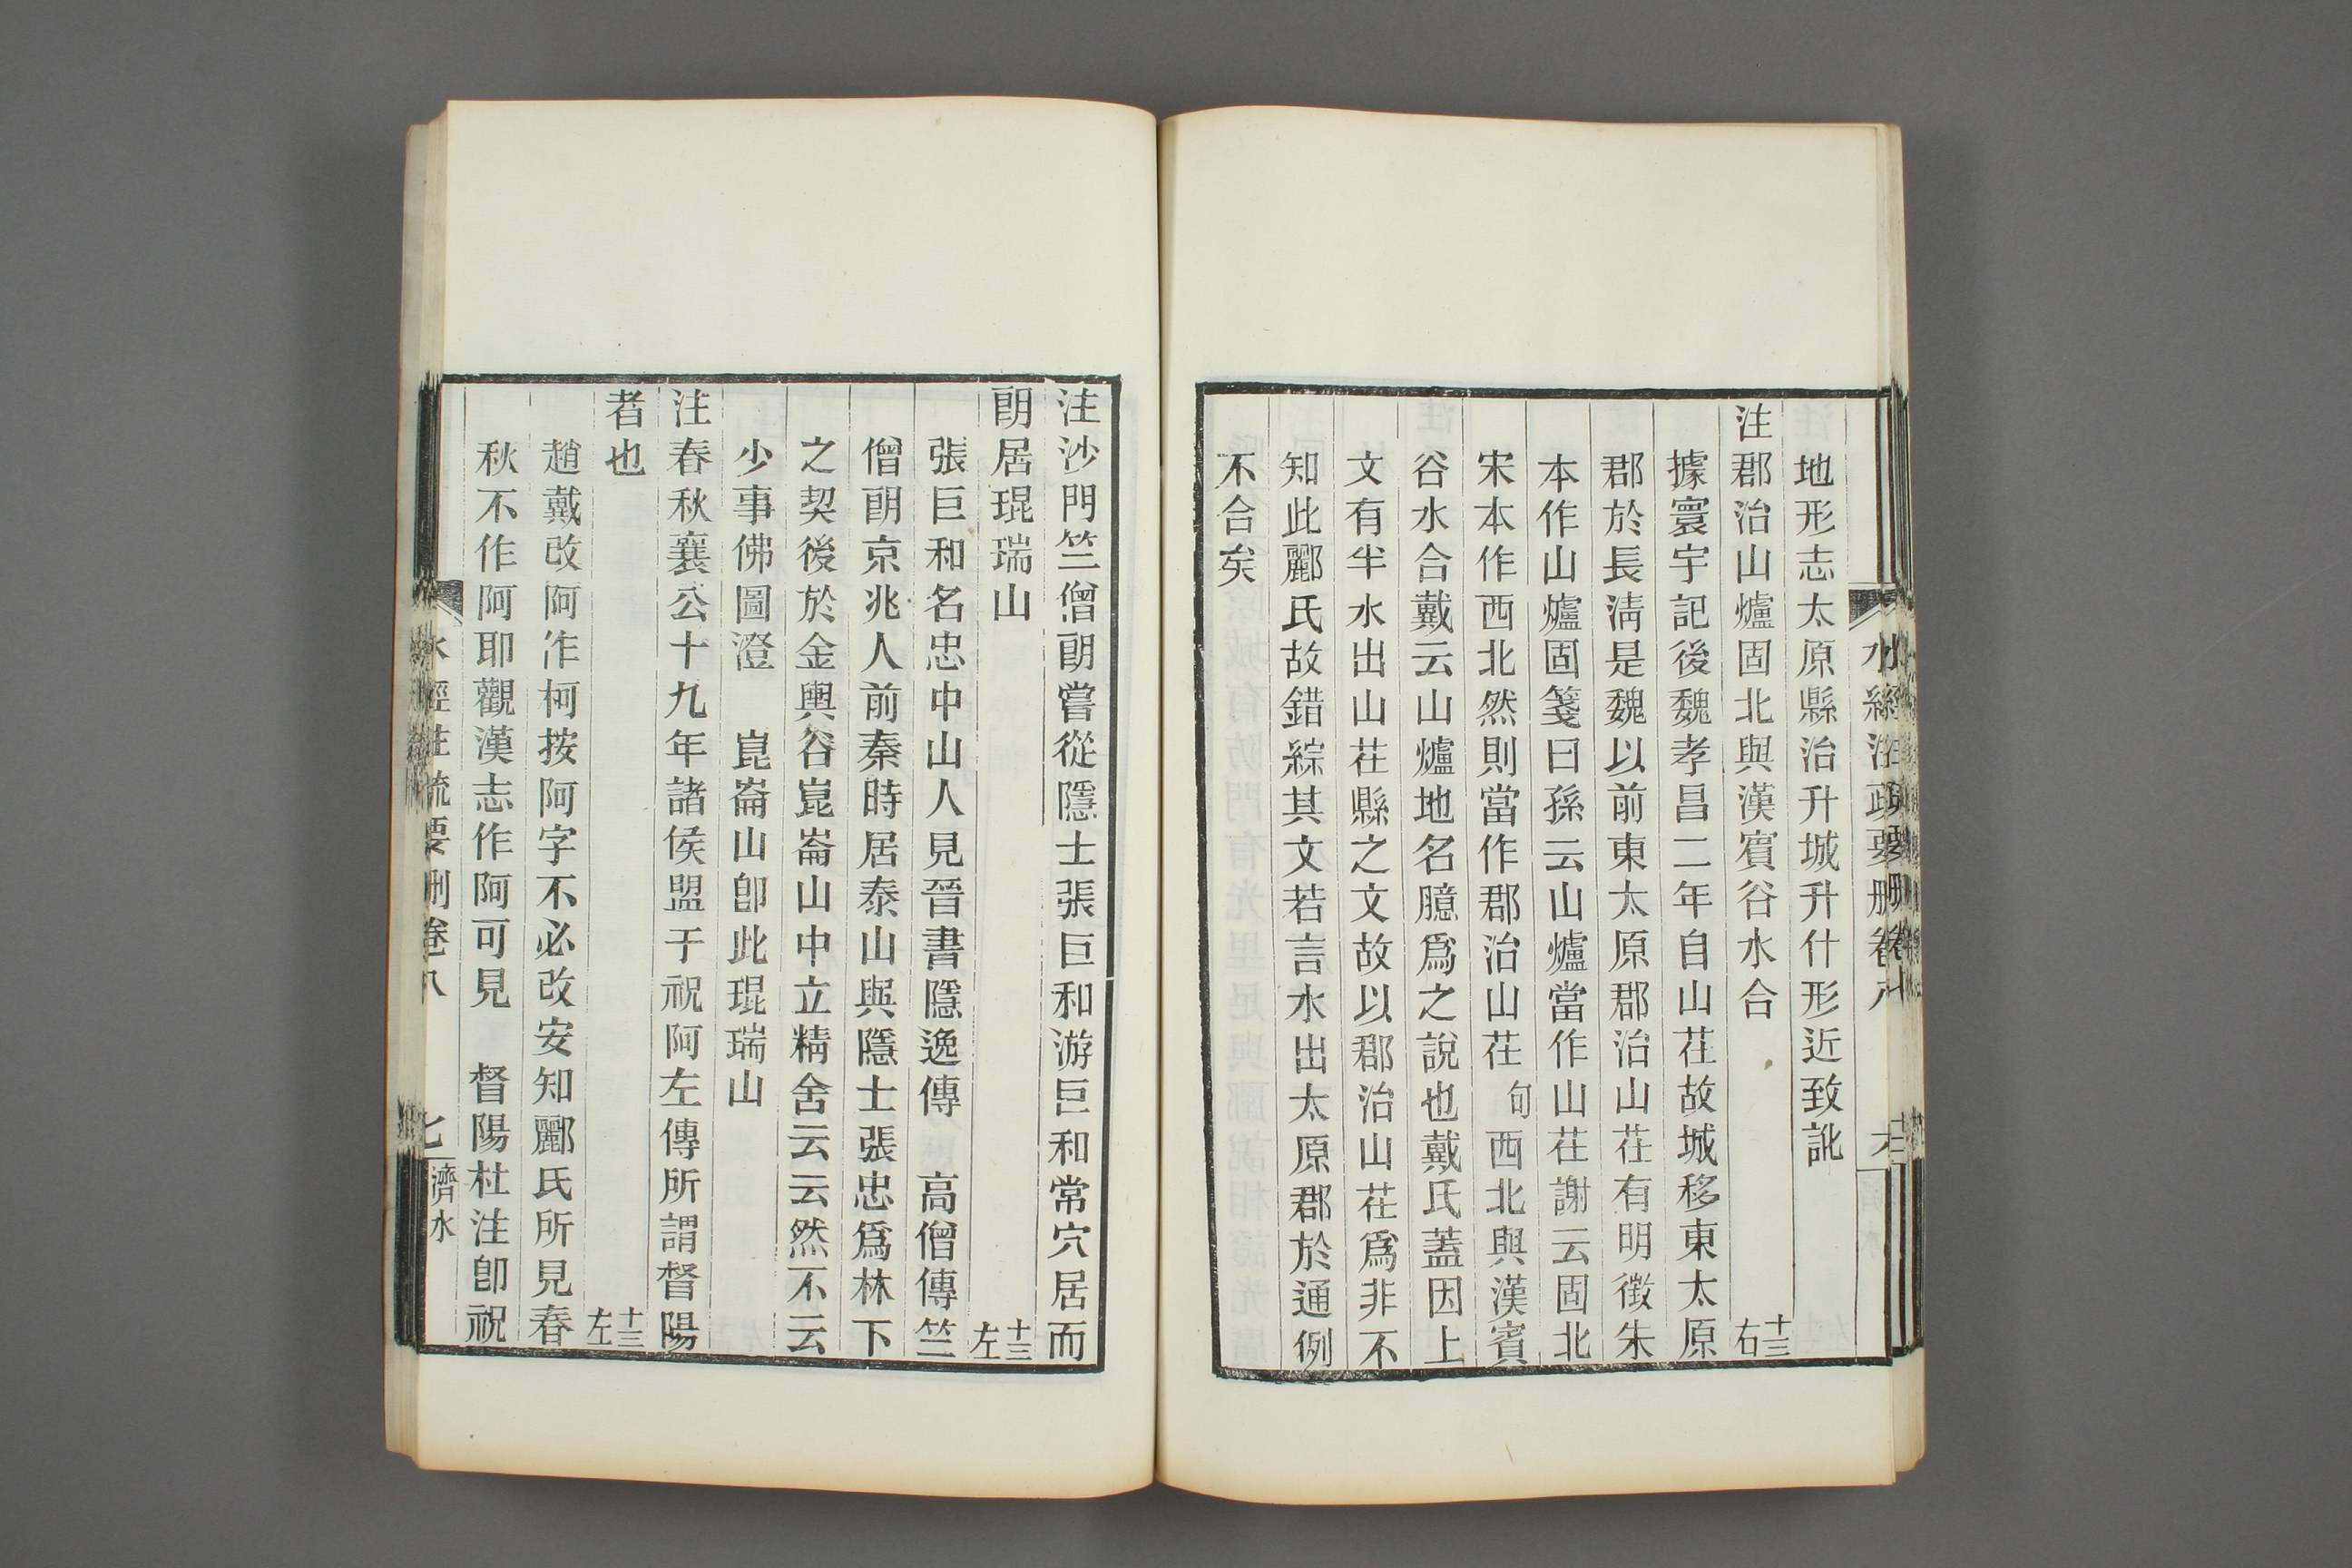 水經注疏要刪卷八
地形志太原縣治升城升什形近致訛
注郡治山爐固北與漢賓谷水合 十三右
據寰宇記後魏孝昌二年自山茌故城移東太原
郡於長淸是魏以前東太原郡治山茌有明徵朱
本作山爐固箋曰孫云山爐當作山茌謝云固北
宋本作西北然則當作郡治山茌句西北與漢賓
谷水合戴云山爐地名臆爲之說也戴氏蓋因上
文有半水出山茌縣之文故以郡治山茌爲非不
知此酈氏故錯綜其文若言水出太原郡於通例
不合矣
注沙門竺僧朗嘗從隱士張巨和游巨和常穴居而
朗居琨瑞山 十三左
張巨和名忠中山人見晉書隱逸傳 高僧傳竺
僧朗京兆人前秦時居泰山與隱士張忠爲林下
之契後於金輿谷崑崙山中立精舍云云然不云
少事佛圖澄 崑崙山卽此琨瑞山
注春秋襄公十九年諸侯盟于祝阿左傳所謂督陽
者也 十三左
趙戴改阿作柯按阿字不必改安知酈氏所見春
秋不作阿耶觀漢志作阿可見 督陽杜注卽祝
水經注疏要刪卷八 七 濟水